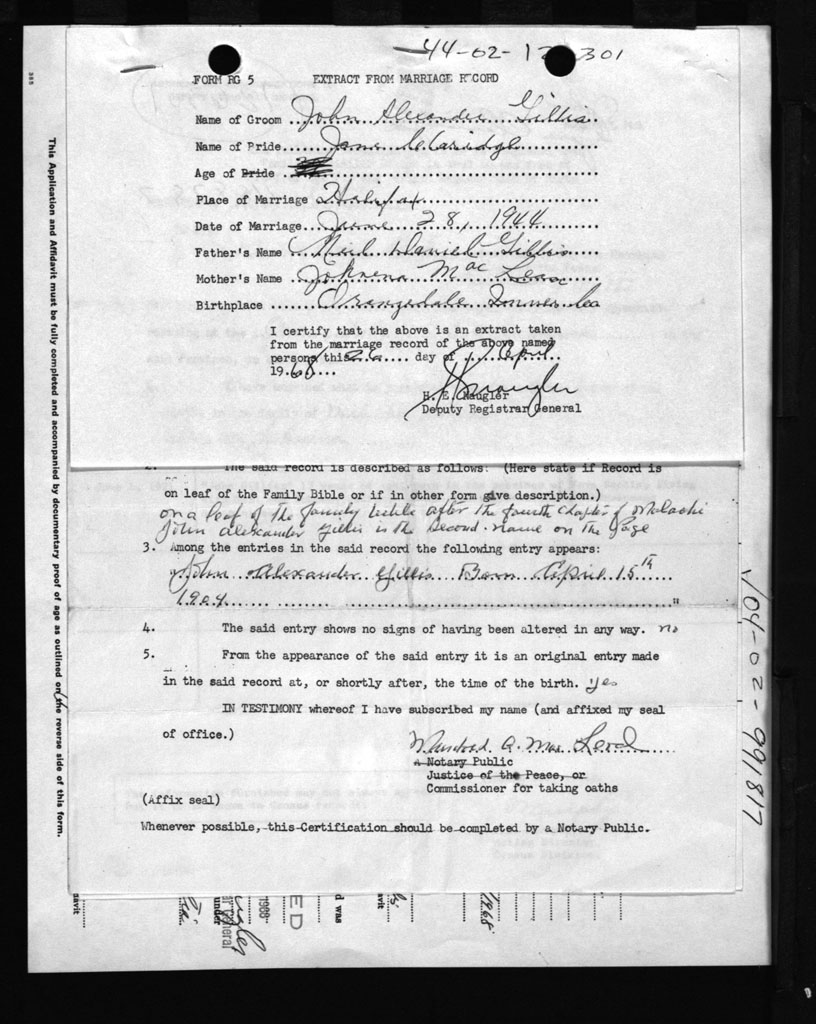 44-02-12 301
FORM RG 5 EXTRACT FROM MARRIAGE RECORD
Name of Groom John Alexander Gillis
Name of Bride Jane
Age of Bride
Place of Marriage Halifax
Date of Marriage June 28, 1944
Father's Name Neil Daniel Gillis
Mother's Name Johnena Mac Lean
Birthplace Orangedale Inverness Co
I certify that the above is an extract taken
from the marriage record of the above named
persons this 26 day of April
19 68
H. E. Naugler
Deputy Registrar General
2. The said record is described as follows: (Here state if Record is
on leaf of the Family Bible or if in other form give description.)
on a leaf of the family bible after the fourth chapter of Malachi
John Alexander Gillis is the second name on the Page
3. Among the entries in the said record the following entry appears:
"John Alexander Gillis Born April 15th
1904 "
4. The said entry shows no signs of having been altered in any way. no
5. From the appearance of the said entry it is an original entry made
in the said record at, or shortly after, the time of the birth. yes
IN TESTIMONY whereof I have subscribed my name (and affixed my seal
of office.)
Murdoch A. Mac Leod
A Notary Public
Justice of the Peace, or
Commissioner for taking oaths
(Affix seal)
Whenever possible, this Certification should be completed by a Notary Public.
This Application and Affidavit must be fully completed and accompanied by documentary proof of age as outlined on the reverse side of this form.
104-02-991817
1968
d was
ED
1908-
under